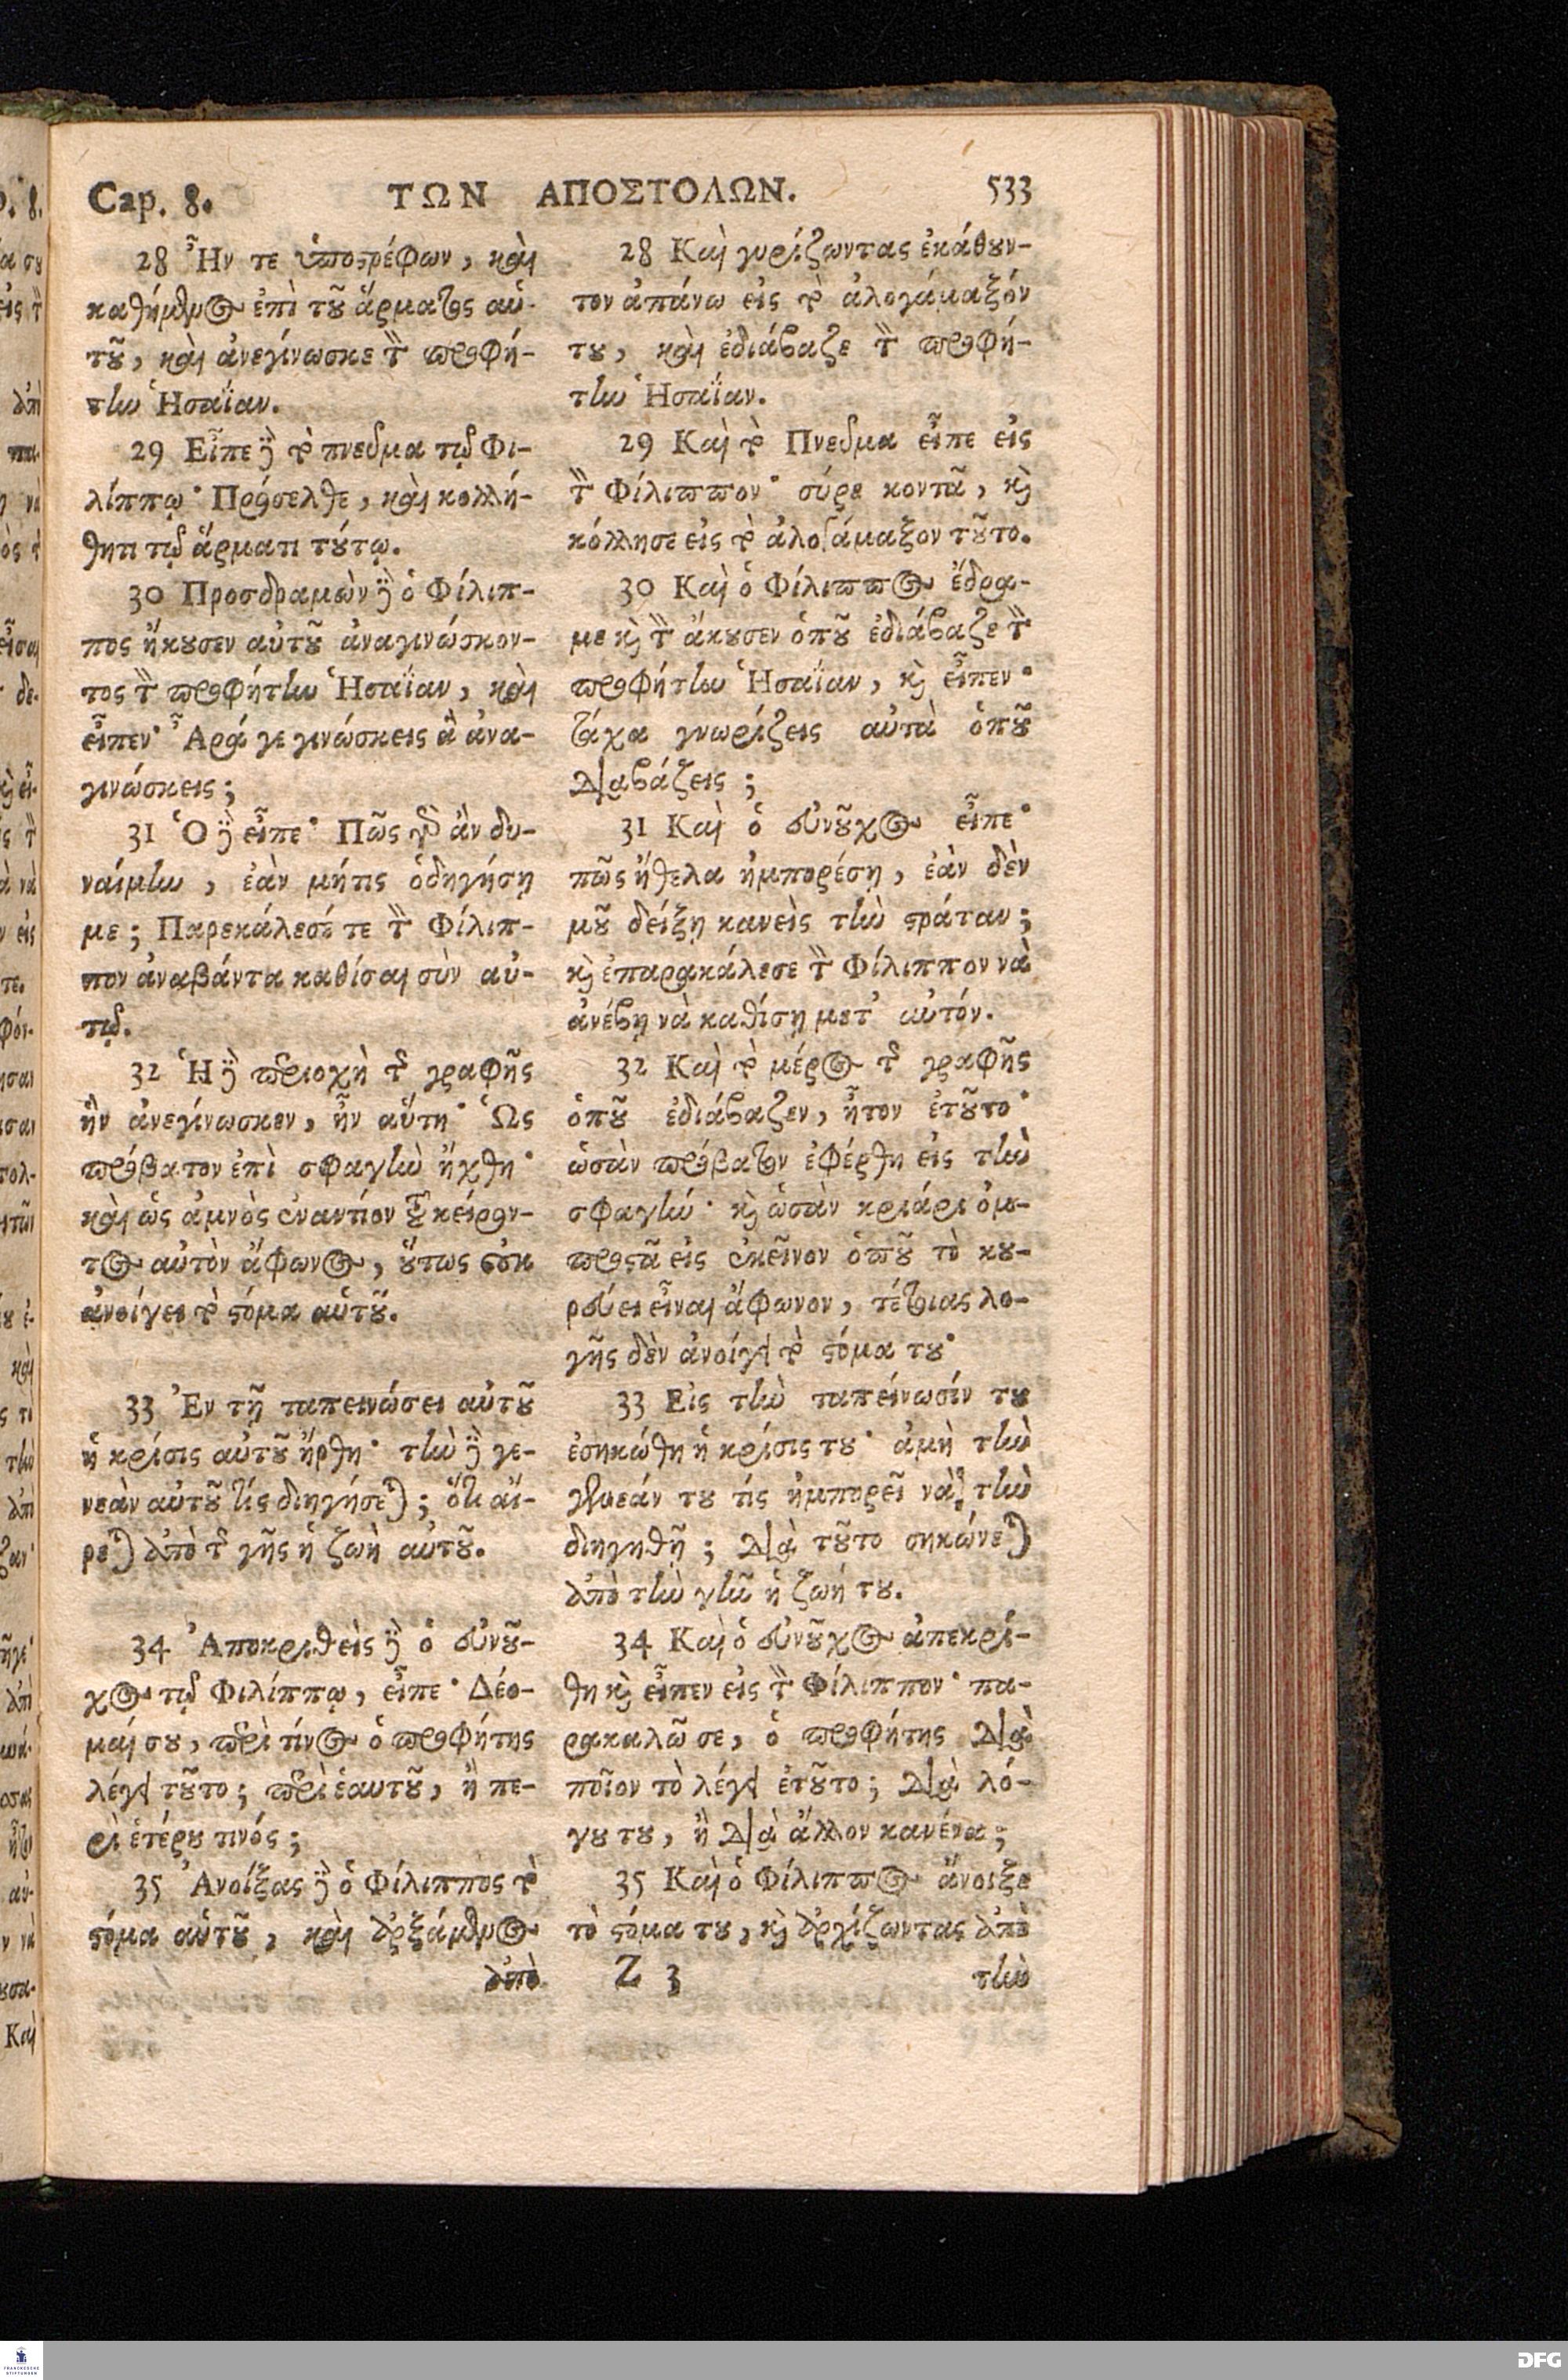 Cap. 8. ΤΩΝ ΑΠΟΣΤΟΛΩΝ. 533
28 Ἦν τε ὑποϛρέφων, καὶ
καθήμενος ἐπὶ τȣ͂ ἅρματος αὑ-
τȣ͂, καὶ ἀνεγίνωσκε τὸν προφή-
την Ἡσαΐαν.
29 Εἶπε δὲ τὸ πνεῦμα τῷ Φι-
λίππῳ· Πρόσελθε, καὶ κολλή-
θητι τῷ ἅρματι τȣ́τῳ.
30 Προσδραμὼν δὲ ὁ Φίλιπ-
πος ἤκȣσεν αὐτȣ͂ ἀναγινώσκον-
τος τὸν προφήτην Ἡσαΐαν, καὶ
εἶπεν· Ἆρά γε γινώσκεις ἃ ἀνα-
γινώσκεις;
31 Ὁ δὲ εἶπε· Πῶς γὰρ ἂν δυ-
ναίμην, ἐὰν μήτις ὁδηγήσῃ
με; Παρεκάλεσέ τε τὸν Φίλιπ-
πον ἀναβάντα καθίσαι σὺν αὐ-
τῷ.
32 Ἡ δὲ περιοχὴ τῆς γραφῆς
ἣν ἀνεγίνωσκεν, ἦν αὕτη· Ὡς
πρόβατον ἐπὶ σφαγὴν ἤχθη·
καὶ ὡς ἀμνὸς ἐναντίον τȣ͂ κείρον-
τος αὐτὸν ἄφωνος, ȣ̔́τως οὐκ
ἀνοίγει τὸ ϛόμα αὑτȣ͂.
33 Ἐν τῇ ταπεινώσει αὐτȣ͂
ἡ κρίσις αὐτȣ͂ ἤρθη· τὴν δὲ γε-
νεὰν αὐτȣ͂ τίς διηγήσεται; ὅτι αἴ-
ρεται ἀπὸ τῆς γῆς ἡ ζωὴ αὐτȣ͂.
34 Ἀποκριθεὶς δὲ ὁ εὐνȣ͂-
χος τῷ Φιλίππῳ, εἶπε· Δέο-
μαί σȣ, περὶ τίνος ὁ προφήτης
λέγει τȣ͂το; περὶ ἑαυτȣ͂, ἢ πε-
ρὶ ἑτέρȣ τινός;
35 Ἀνοίξας δὲ ὁ Φίλιππος τὸ
ϛόμα αὑτȣ͂, καὶ ἀρξάμενος
ἀπὸ
28 Καὶ γυρίζωντας ἐκάθȣν-
τον ἀπάνω εἰς τὸ ἀλογάμαξόν
τȣ, καὶ ἐδιάβαζε τὸν προφή-
την Ἡσαΐαν.
29 Καὶ τὸ Πνεῦμα εἶπε εἰς
τὸν Φίλιππον· σύρε κοντᾶ, κὶ
κόλλησε εἰς τὸ ἀλογάμαξον τȣ͂το.
30 Καὶ ὁ Φίλιππος ἔδρα-
με κὶ τὸν ἄκȣσεν ὁπȣ͂ ἐδιάβαζε τὸν
προφήτην Ἡσαΐαν, κὶ εἶπεν·
τάχα γνωρίζεις αὐτὰ ὁπȣ͂
διαβάζεις;
31 Καὶ ὁ εὐνȣ͂χος εἶπε·
πῶς ἤθελα ἠμπορέσῃ, ἐὰν δὲν
μȣ͂ δείξῃ κανεὶς τὴν ϛράταν;
κὶ ἐπαρακάλεσε τὸν Φίλιππον νὰ
ἀνέβῃ νὰ καθίσῃ μετ' αὐτόν.
32 Καὶ τὸ μέρος τῆς γραφῆς
ὁπȣ͂ ἐδιάβαζεν, ἦτον ἐτȣ͂το·
ὡσὰν πρόβατον ἐφέρθη εἰς τὴν
σφαγήν· κὶ ὡσὰν κριάρι ὀμ-
προϛᾶ εἰς ἐκεῖνον ὁπȣ͂ τὸ κȣ-
ρεύει εἶναι ἄφωνον, τέτοιας λο-
γῆς δὲν ἀνοίγει τὸ ϛόμα τȣ·
33 Εἰς τὴν ταπείνωσίν τȣ
ἐσηκώθη ἡ κρίσις τȣ· ἀμὴ τὴν
γενεάν τȣ τίς ἠμπορεῖ νὰ τὴν
διηγηθῇ; διὰ τȣ͂το σηκώνεται
ἀπὸ τὴν γῆν ἡ ζωή τȣ.
34 Καὶ ὁ εὐνȣ͂χος ἀπεκρί-
θη κὶ εἶπεν εἰς τὸν Φίλιππον· πα-
ρακαλῶ σε, ὁ προφήτης διὰ
ποῖον τὸ λέγει ἐτȣ͂το; διὰ λό-
γȣ τȣ, ἢ διὰ ἄλλον κανένα;
35 Καὶ ὁ Φίλιππος ἄνοιξε
τὸ ϛόμα τȣ, κὶ ἀρχίζωντας ἀπὸ
Z 3 τὴν
FRANCKESCHE STIFTUNGEN
DFG